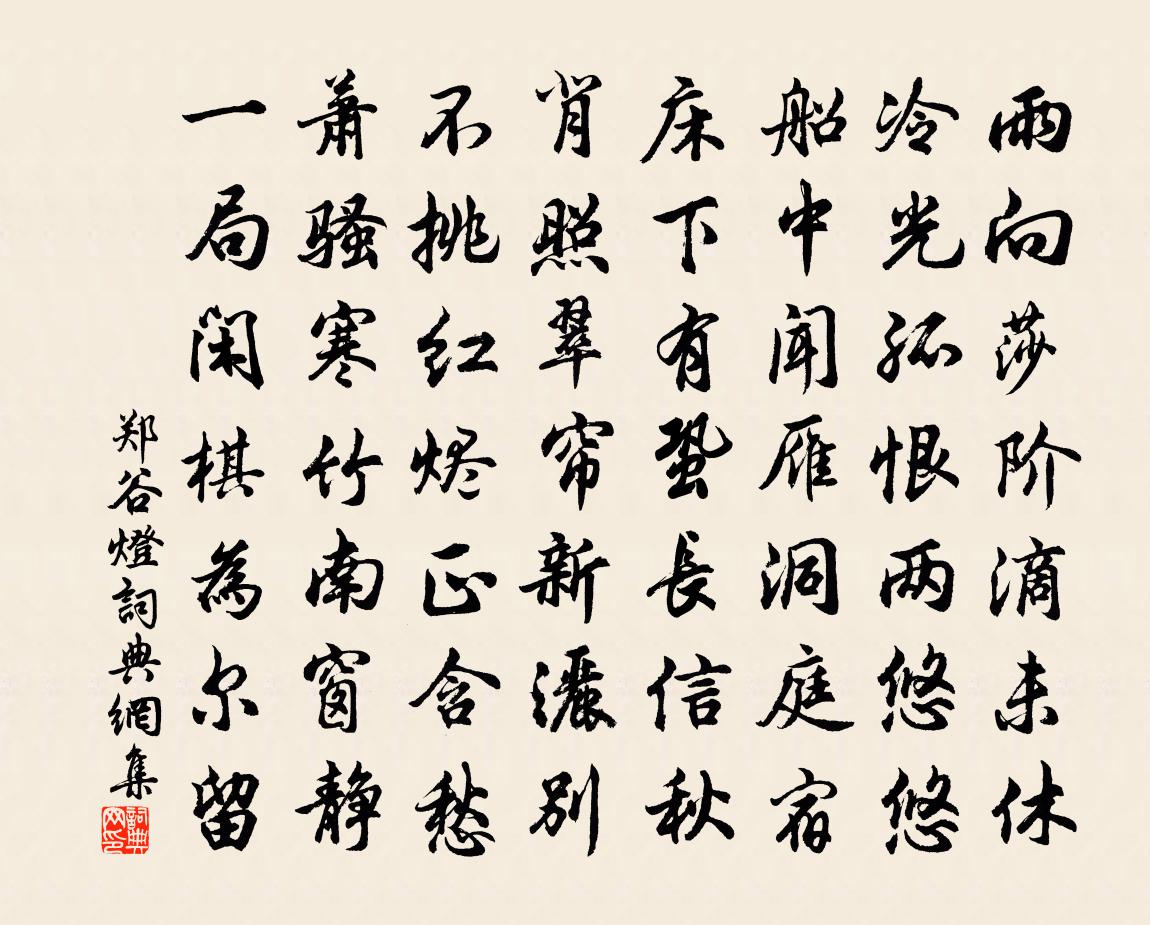 雨向莎阶滴未休
冷光孤恨两悠悠
船中闻雁洞庭宿
床下有蛩長信秋
背照翠帘新灑别
不挑红烬正含愁
萧骚寒竹南窗静
一局闲棋為尔留
郑谷燈詞典網集
詞典网印